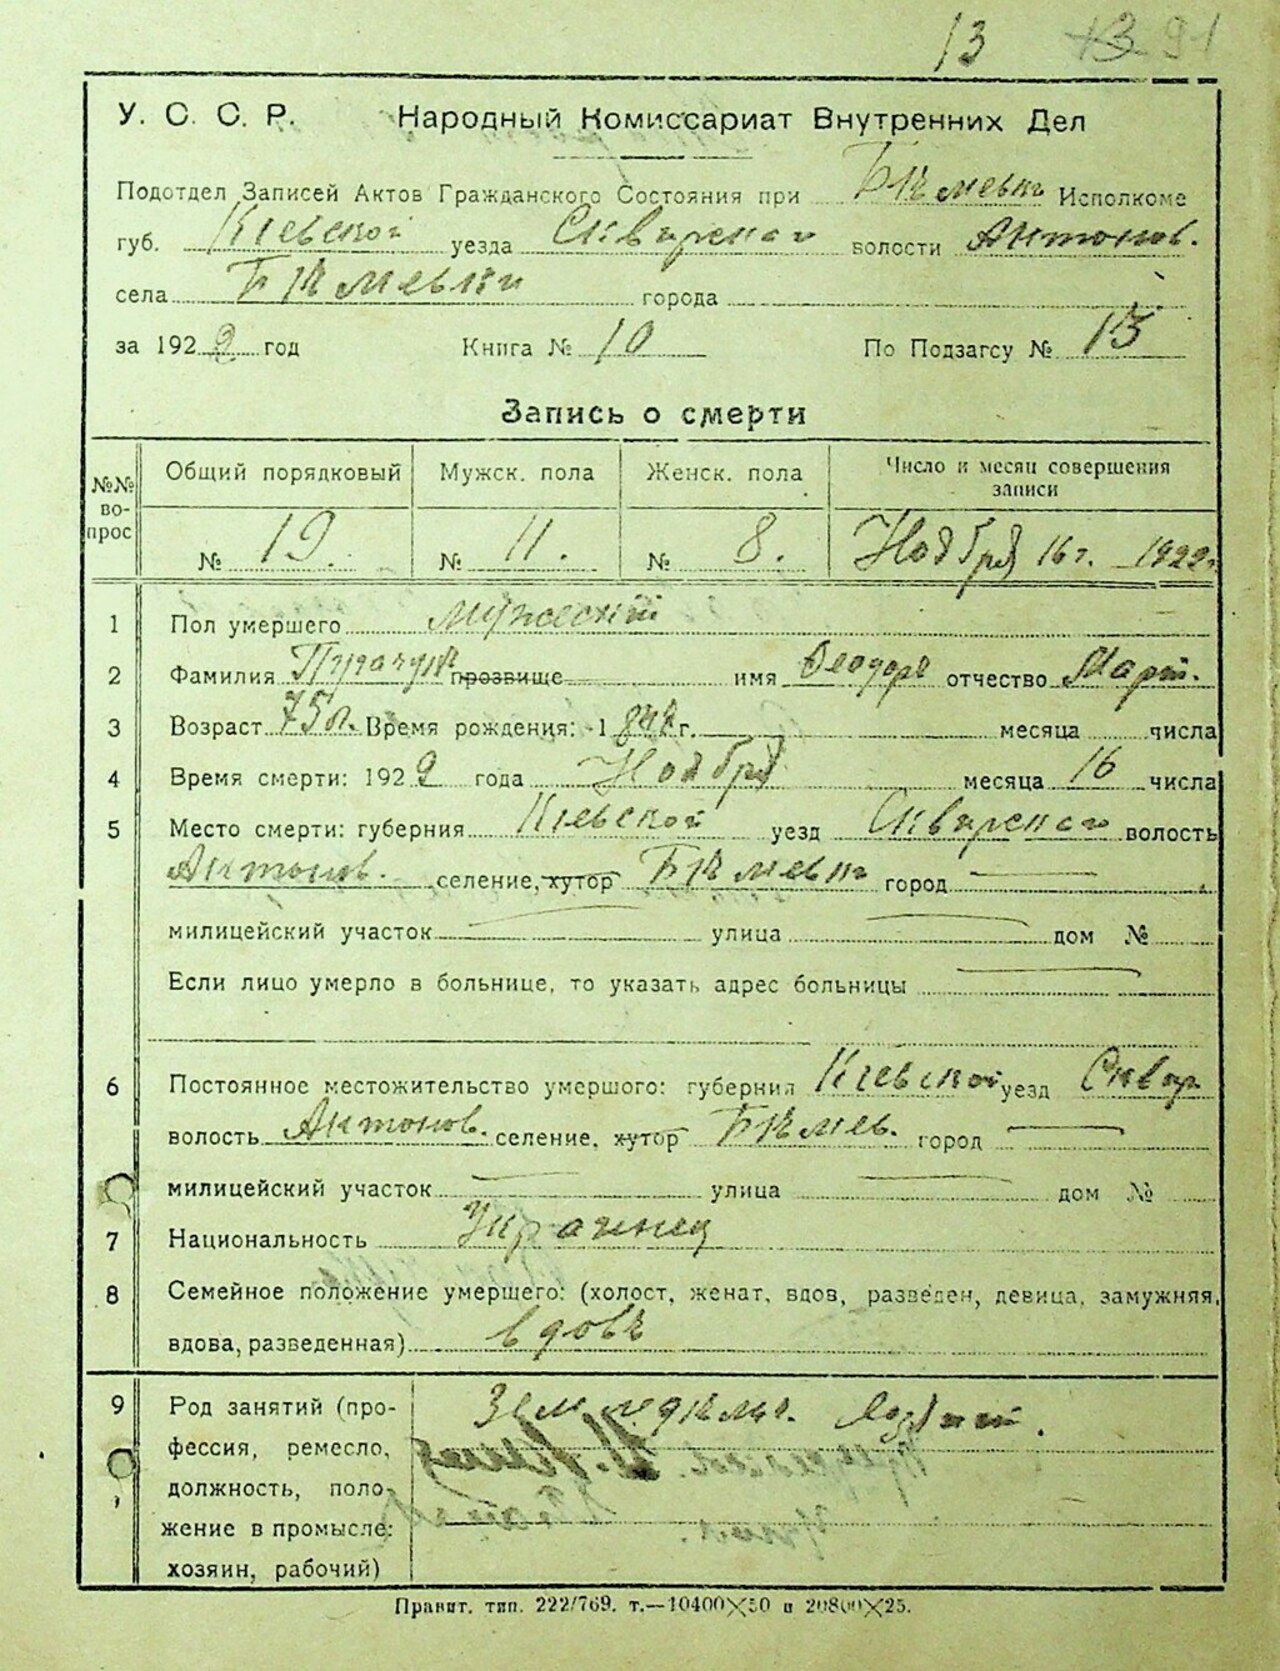 13 13 91
У. С. С. Р. Народный Комиссариат Внутренних Дел
Подотдел Записей Актов Гражданского Состояния при Бѣлиевк Исполкоме
губ. Кіевской уезда Сквирскаго волости Антонов.
села Бѣлиевки города
за 1922 год Книга № 10 По Подзагсу № 13
Запись о смерти
№№ вопрос Общий порядковый Мужск. пола Женск. пола Число и месяц совершения записи
№ 19. № 11. № 8. Ноября 16 г. 1922 г.
1 Пол умершего мужеский
2 Фамилия прозвище имя Феодоръ отчество Март.
3 Возраст 75 л. Время рождения: 1847 г. месяца числа
4 Время смерти: 1922 года Ноября месяца 16 числа
5 Место смерти: губерния Кіевской уезд Сквирскаго волость
Антонов. селение, хутор город
милицейский участок улица дом №
Если лицо умерло в больнице, то указать адрес больницы
6 Постоянное местожительство умершого: губерния Кіевской уезд Сквир
волость Антонов. селение, хутор город
милицейский участок улица дом №
7 Национальность Украинец
8 Семейное положение умершего: (холост, женат, вдов, разведен, девица, замужняя,
вдова, разведенная) вдовъ
9 Род занятий (про- Земледѣлч. хозяин.
фессия, ремесло,
должность, поло-
жение в промысле:
хозяин, рабочий)
Правит. тип. 222/769. т.—10400×50 и 20800×25.